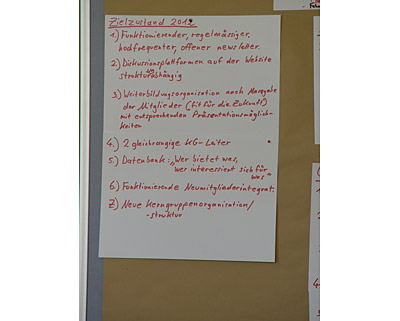 Zielzustand 2012
1.) Funktionierender, regelmässiger,
hochfrequenter, offener newsletter
2.) Diskussionsplattformen auf der Website
strukturabhängig
3.) Weiterbildungsorganisation nach Massgabe
der Mitglieder (Fit für die Zukunft)
mit entsprechenden Präsentationsmöglich-
keiten
4.) 2 gleichrangige KG-Leiter
5.) Datenbank: „Wer bietet was,
wer interessiert sich für
was"
6.) Funktionierende Neumitgliederintegrat.
7.) Neue Kerngruppenorganisation/
-struktur